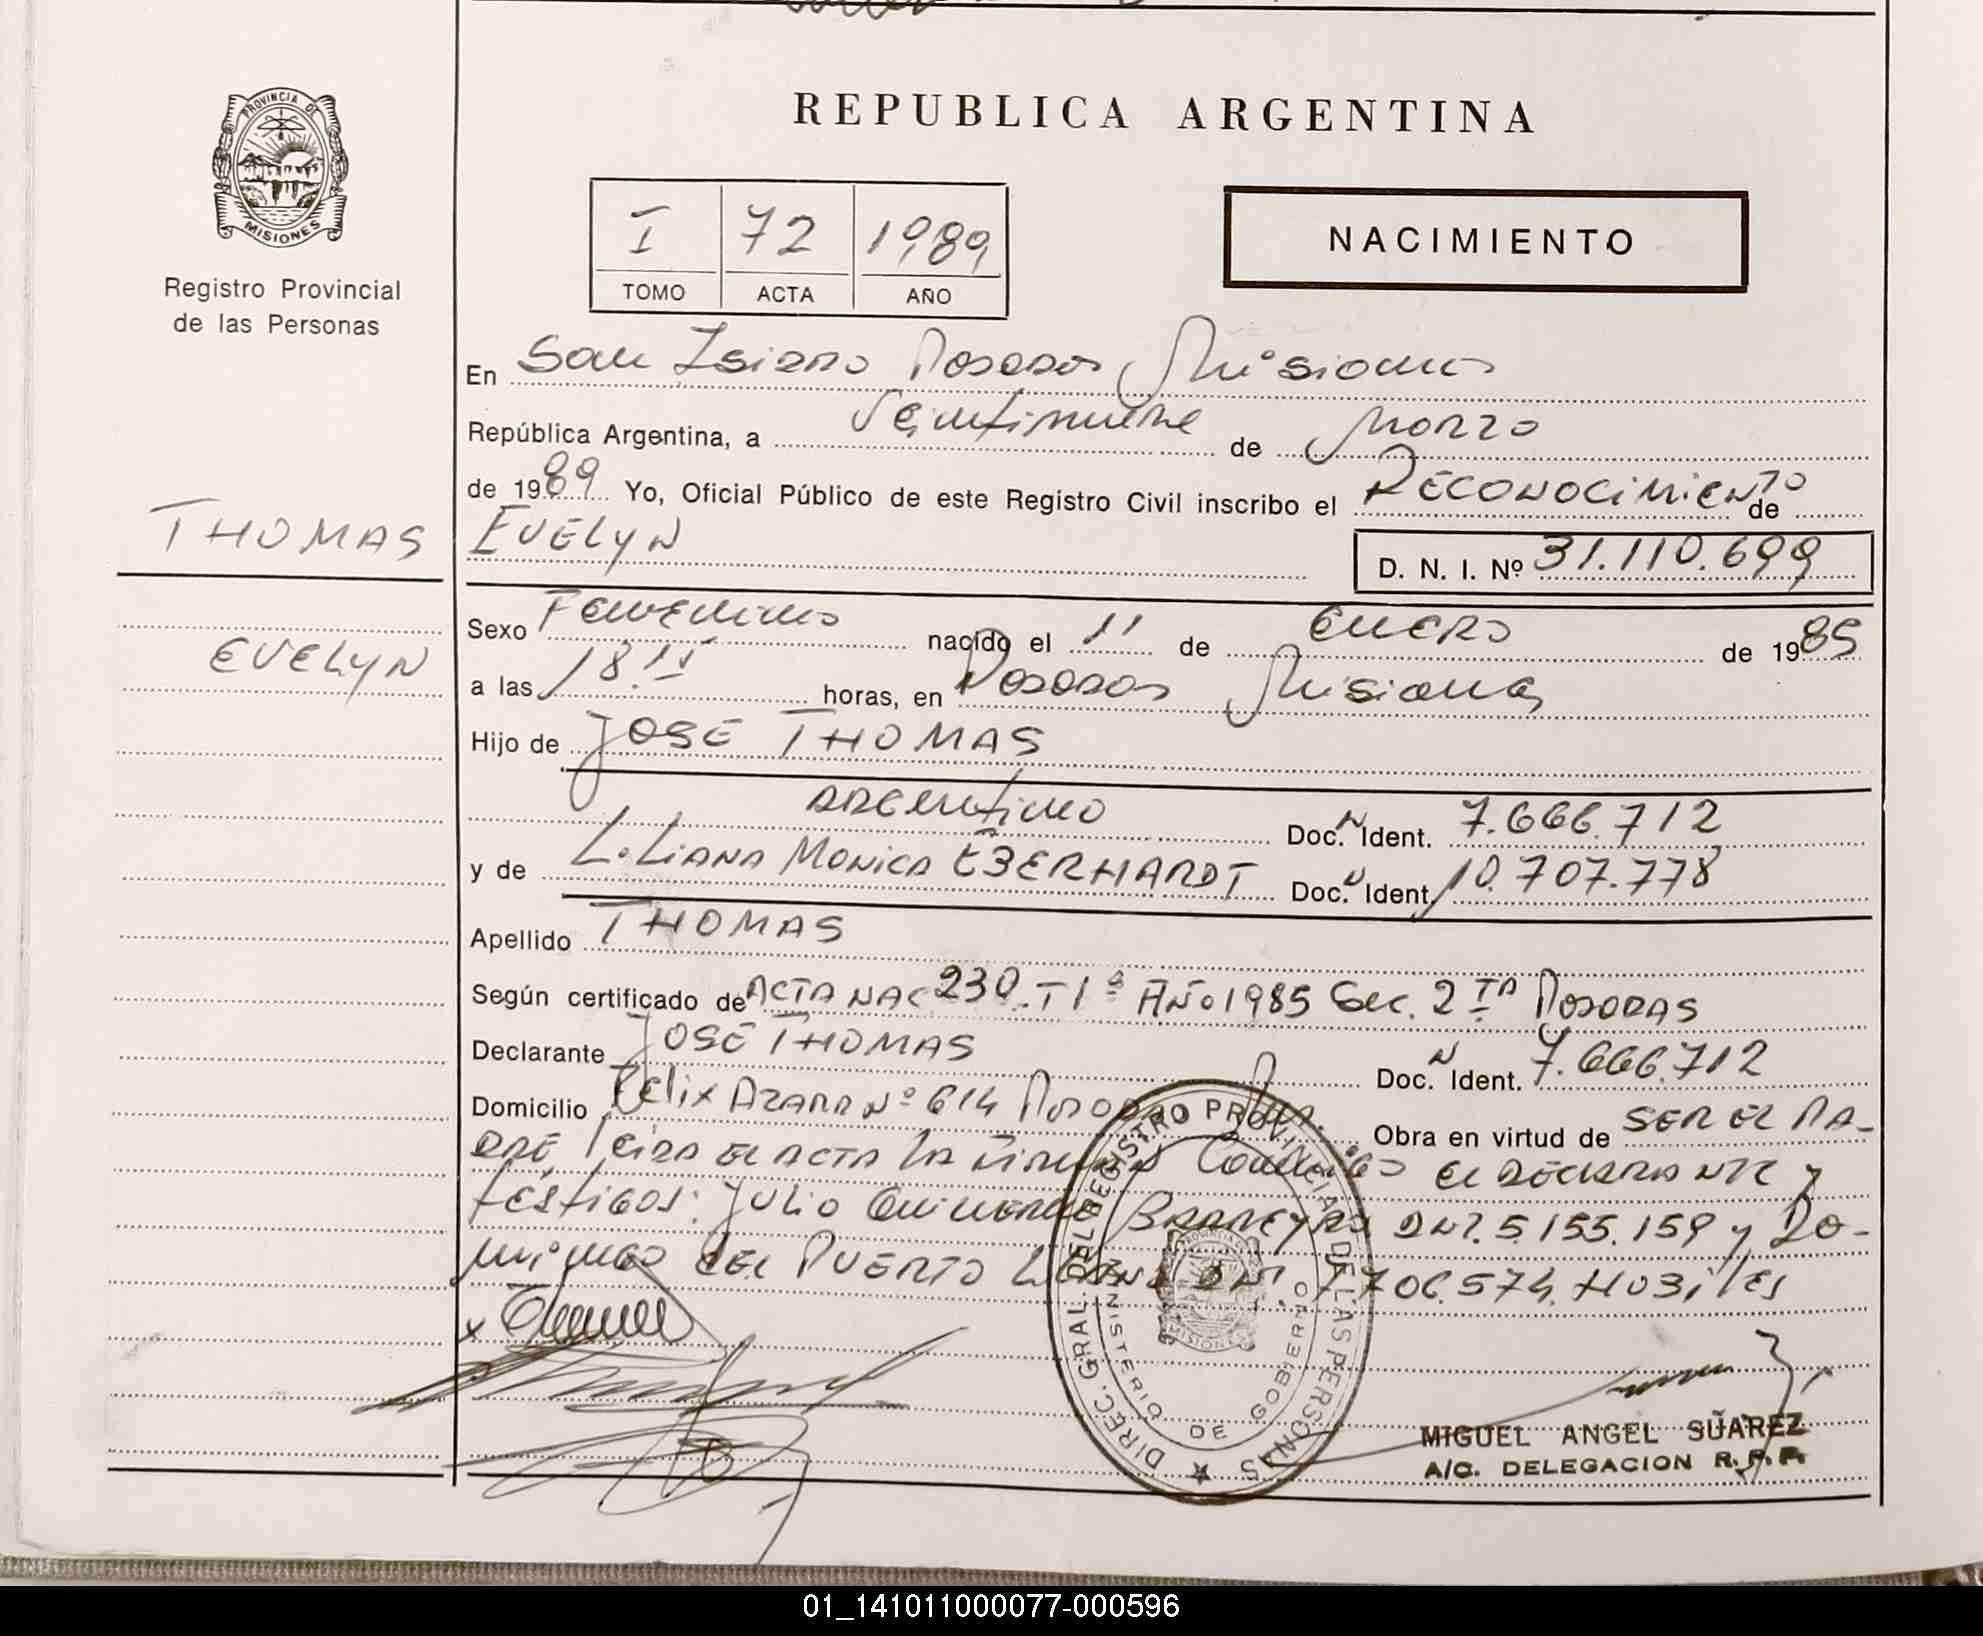 REPUBLICA ARGENTINA
PROVINCIA DE
MISIONES
Registro Provincial
de las Personas
I 72 1989
TOMO ACTA AÑO
NACIMIENTO
En San Isidro Posadas Misiones
República Argentina, a Veintinueve de Marzo
de 1989 Yo, Oficial Público de este Registro Civil inscribo el RECONOCIMIENTO de
THOMAS
EVELYN
D. N. I. Nº 31.110.699
EVELYN
Sexo Femenino nacido el 11 de ENERO de 1985
a las 18.15 horas, en Posadas Misiones
Hijo de JOSE THOMAS
ARGENTINO Doc. N Ident. 7.666.712
y de LiLIANA MONICA EBERHARDT Doc. N Ident. 10.707.778
Apellido THOMAS
Según certificado de ACTA NAC 230. T 1º AÑO 1985 Sec. 2 TA POSADAS
Declarante JOSE THOMAS Doc. N Ident. 7.666.712
Domicilio Felix AZARA Nº 614 POSADAS Obra en virtud de SER EL PA-
DRE leida EL ACTA LA FIRMAN Conmigo el DECLARANTE y
testigos: Julio Guillermo BARREYRO DNI. 5.155.159 y DO-
mingo DEL PUERTO 706.574. HOBiles
DIREC. GRAL. DEL REGISTRO PROVINCIAL DE LAS PERSONAS
MINISTERIO DE GOBIERNO
MIGUEL ANGEL SUAREZ
A/C. DELEGACION R. P. P.
01_141011000077-000596